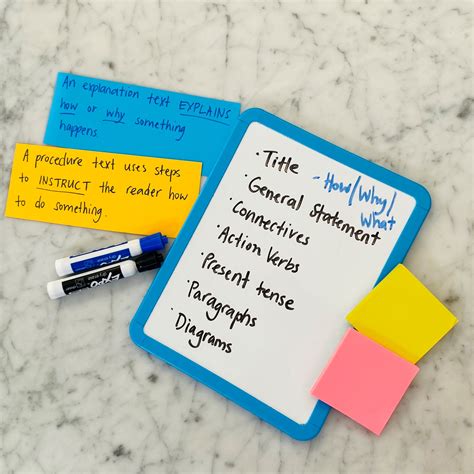 An explanation text EXPLAINS
how or why something
happens.
A procedure text uses steps
to INSTRUCT the reader how
to do something.
• Title - How/Why/
What
• General Statement
• Connectives
• Action Verbs
• Present tense
• Paragraphs
• Diagrams
EXPO
EXPO